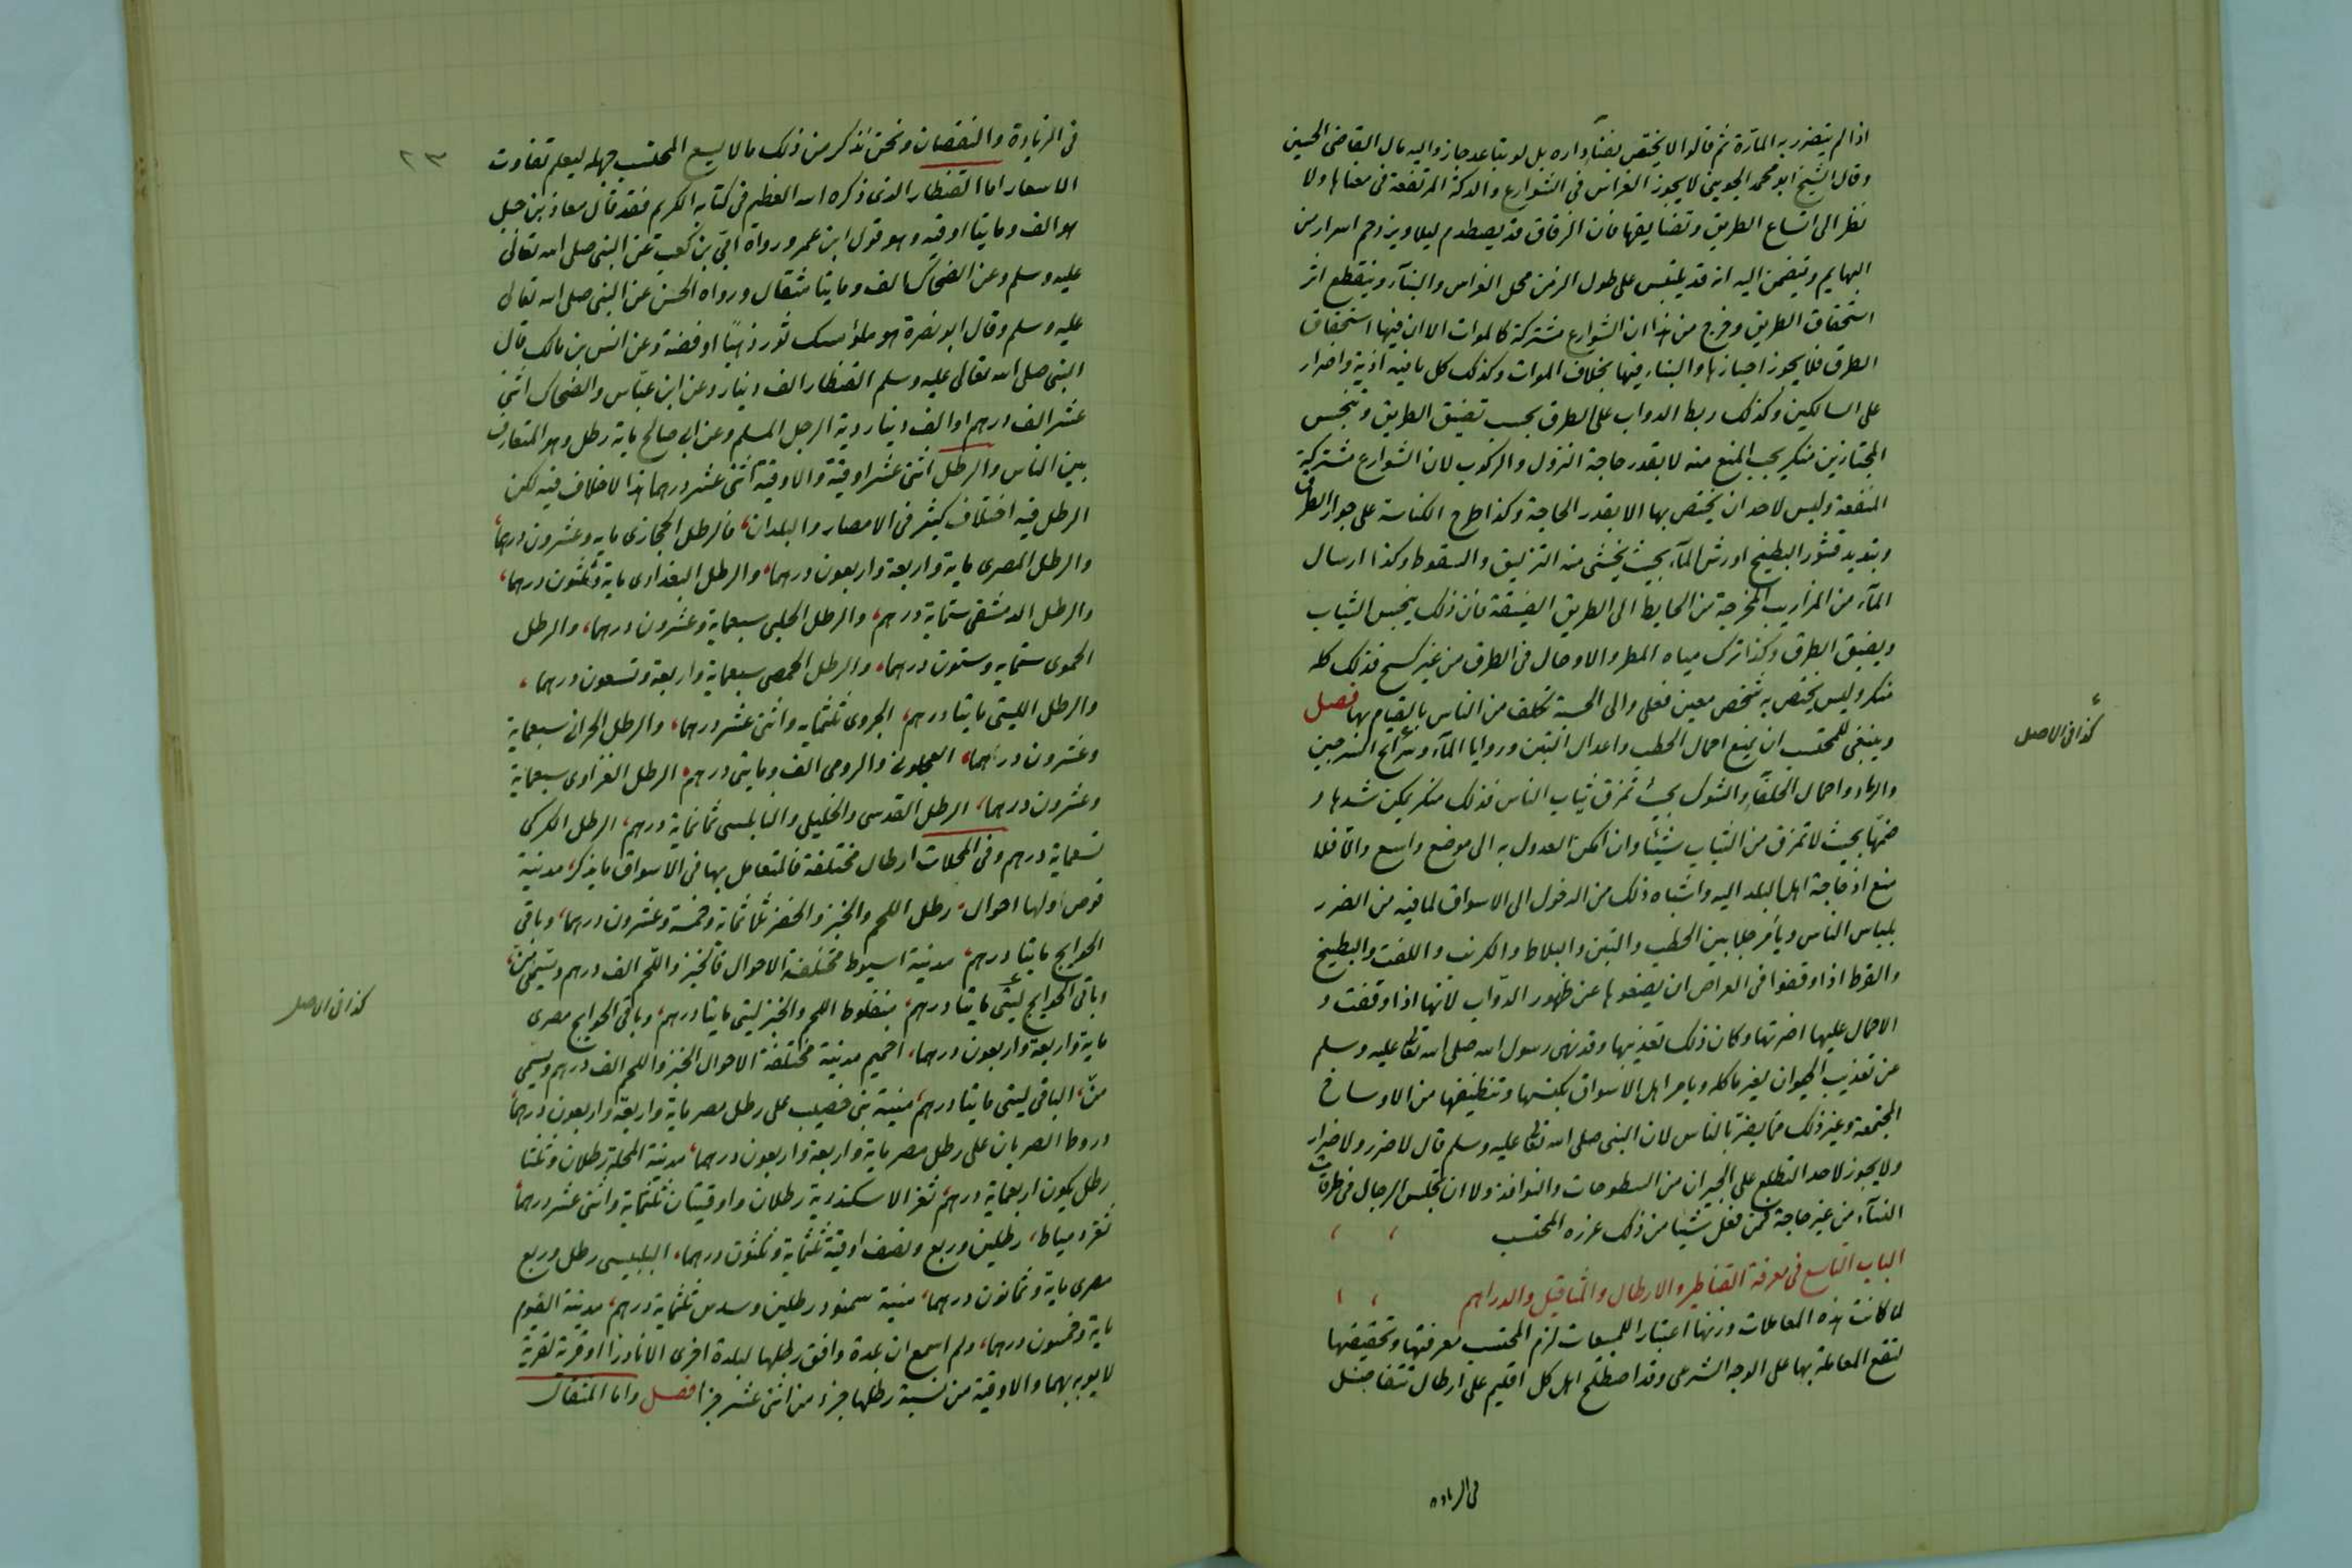 اذا لم يتضرر به المارة ثم قالوا لا يختص بفناء داره بل لو تباعد جاز واليه مال القاضى الحسين
وقال الشيخ ابو محمد الجوينى لا يجوز الغراس فى الشوارع والدكة المرتفعة فى معناها ولا
نظر الى اتساع الطريق وتضايقها فان الزقاق قد يصطدم ليلا ويزدحم اسراب من
البهايم ويتضمن اليه انه قد يلتبس على طول الزمن محل الغراس والبناء وينقطع اثر
استحقاق الطريق وخرج من هذا ان الشوارع مشتركة كالموات الا ان فيها استحقاق
الطرق فلا يجوز احيازها والبناء فيها بخلاف الموات وكذلك كل ما فيه اذية واضرار
على السالكين وكذلك ربط الدواب على الطرق بحسب تضيق الطريق وتنجس
المجتازين منكر يجب المنع منه لا بقدر حاجة النزول والركوب لان الشوارع مشتركة
المنفعة وليس لاحد ان يختص بها الا بقدر الحاجة وكذا طرح الكناسة على جواد الطرق
وتبديد قشور البطيخ او رش المآء بحيث يخشى منه التزليق والسقوط وكذا ارسال
المآء من المزاريب المخرجة من الحايط الى الطريق الضيقة فان ذلك ينجس الثياب
ويضيق الطرق وكذا ترك مياه المطر والاوحال فى الطرق من غير كسح فذلك كله
منكر وليس يختص به شخص معين فعلى والى الحسبة تكلف من الناس بالقيام بها فصل
وينبغى للمحتسب ان يمنع احمال الحطب واعدال التبن وروايا المآء وشرايح السرجين
والرماد واحمال الحلفا والشوك بحيث تمزق ثياب الناس فذلك منكر يمكن شدها و
ضمها بحيث لا تمزق من الثياب شيئا وان امكن العدول به الى موضع واسع والا فلا
منع اذ حاجة اهل البلد اليه واشباه ذلك من الدخول الى الاسواق لما فيه من الضرر
بلباس الناس ويأمر جلابين الحطب والتبن والبلاط والكرنب واللفت والبطيخ
والقرط اذا وقفوا فى العراص ان يضعوها عن ظهور الدواب لأنها اذا وقفت و
الاحمال عليها اضرتها وكان ذلك تعذيبها وقد نهى رسول الله صلى الله تعالى عليه وسلم
عن تعذيب الحيوان لغير ماكله ويامر اهل الاسواق بكنسها وتنظيفها من الاوساخ
المجتمعة وغير ذلك مما يضر بالناس لان النبى صلى الله تعالى عليه وسلم قال لا ضرر ولا ضرار
ولا يجوز لاحد التطلع على الجيران من السطوحات والنوافذ ولا ان تجلس الرجال فى طرقات
النسآء من غير حاجة فمن فعل شيئا من ذلك عزره المحتسب
الباب التاسع فى معرفة القناطير والارطال والمثاقيل والدراهم
لما كانت هذه المعاملات وزنها اعتبار للمبيعات لزم المحتسب معرفتها وتحقيقها
لتقع المعاملة بها على الوجه الشرعى وقد اصطلح اهل كل اقليم على ارطال تتفاضل
فى الزيادة
كذا فى الاصل
٢٣
فى الزيادة والنقصان ونحن نذكر من ذلك ما لا يسع المحتسب جهله ليعلم تفاوت
الاسعار اما القنطار الذى ذكره الله العظيم فى كتابه الكريم فقد قال معاذ بن جبل
هو الف ومايتا اوقيه وهو قول ابن عمر ورواه ابى بن كعب عن النبى صلى الله تعالى
عليه وسلم وعن الضحاك الف ومايتا مثقال ورواه الحسن عن النبى صلى الله تعالى
عليه وسلم وقال ابو نضرة هو ملؤ مسك ثور ذهبًا او فضة وعن انس بن مالك قال
النبى صلى الله تعالى عليه وسلم القنطار الف دينار وعن ابن عباس والضحاك اثنى
عشر الف درهم او الف دينار دية الرجل المسلم وعن ابى صالح ماية رطل وهو المتعارف
بين الناس والرطل اثنى عشر اوقية والاوقية اثنى عشر درهما هذا لا خلاف فيه لكن
الرطل فيه اختلاف كثير فى الامصار والبلدان، فالرطل الحجازى مايه وعشرون درهما،
والرطل المصرى ماية واربعة واربعون درهما، والرطل البغدادى ماية وثلثون درهما،
والرطل الدمشقى ستماية درهم، والرطل الحلبى سبعماية وعشرون درهما، والرطل
الحموى ستمايه وستون درهما، والرطل الحمصى سبعماية واربعة وتسعون درهما،
والرطل الليثى مايتا درهم، الجروى ثلثمايه واثنى عشر درهما، والرطل الحرانى سبعماية
وعشرون درهما، العجلونى والرومى الف ومايتى درهم، الرطل الغزاوى سبعماية
وعشرون درهما، الرطل القدسى والخليلى والنابلسى ثمانماية درهم، الرطل الكركى
تسعماية درهم وفى المحلات ارطال مختلفة فالمتعامل بها فى الاسواق ما يذكر، مدينة
قوص أولها احوال، رطل اللحم والخبز والخضر ثلاثماية وخمسة وعشرون درهما، وباقى
الحوايج مايتا درهم، مدينة اسيوط مختلفة الاحوال فالخبز واللحم الف درهم وتسمى من،
وباقى الحوايج ليثى مايتا درهم، منفلوط اللحم والخبز ليثى مايتا درهم، وباقى الحوايج مصرى
ماية واربعة واربعون درهما، اخميم مدينة مختلفة الاحوال الخبز واللحم الف درهم ويسمى
من، الباقى ليثى مايتا درهم، منية بنى خصيب على رطل مصر ماية واربعة واربعون درهما،
دروط الصربان على رطل مصر ماية واربعة واربعون درهما، مدينة المحلة رطلان وثلثا
رطل يكون اربعماية درهم، ثغر الاسكندرية رطلان واوقيتان ثلثماية واثنى عشر درهما
ثغر دمياط، رطلين وربع ونصف اوقية ثلثماية وثلثون درهما، البلبيسى رطل وربع
مصرى ماية وثمانون درهما، منية سمنود رطلين وسدس ثلثماية درهم، مدينة الفيوم
ماية وخمسون درهما، ولم اسمع ان بلدة وافق رطلها لبلدة اخرى الا نادرا او قرية لقرية
لا يوبه بهما والاوقية من نسبة رطلها جزء من اثنى عشر جزا فصل واما المثقال
كذا فى الاصل